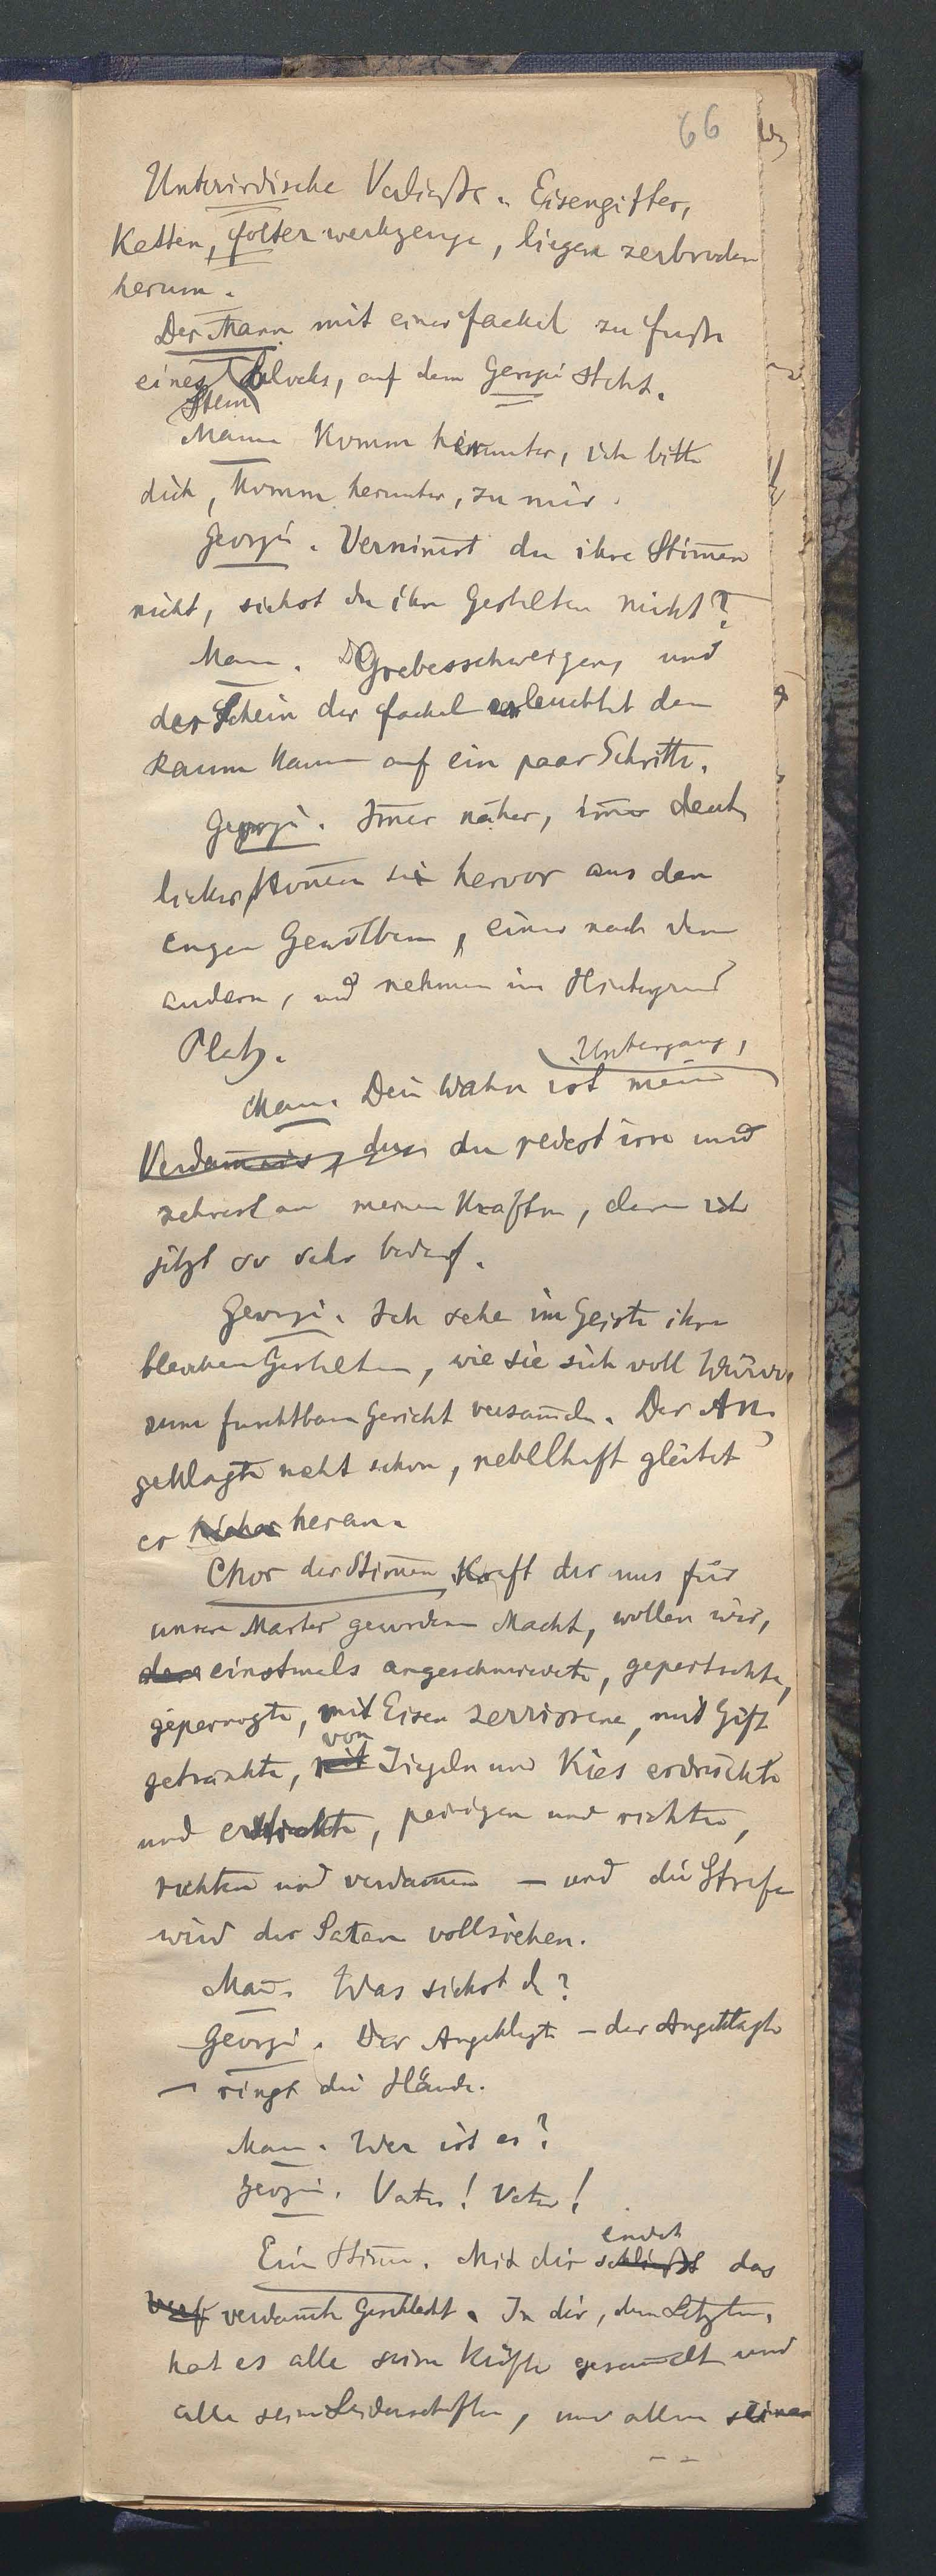 66
Unterirdische Verließe. Eisengitter,
Ketten, Folterwerkzeuge, liegen zerbrochen
herum.
Der Mann mit einer Fackel zu Fuße
eines Blocks, auf dem Georgi steht.
Stein
Mann Komm herunter, ich bitte
dich, komm herunter, zu mir.
Georgi. Vernim̅st du ihre Stim̅en
nicht, siehst du ihre Gestalten nicht?
Mann. Grabesschweigen, und
der Schein der Fackel erleuchtet den
Raum kaum auf ein paar Schritte.
Georgi. Im̅er näher, im̅er deut-
licher kom̅en sie hervor aus den
engen Gewölben, einer nach dem
andern, und nehmen im Hintergrund
Platz.
Untergang,
Mann. Dein Wahn ist mein
Verdam̅nis, du redest irre und
zehrest an meinen Kräften, deren ich
jetzt so sehr bedarf.
Georgi. Ich sehe im Geiste ihre
bleichen Gestalten, wie sie sich voll Würde
zum furchtbaren Gericht versam̅eln. Der An-
geklagte naht schon, nebelhaft gleitet
er heran.
Chor der Stim̅en Kraft der uns für
unsere Marter gewordenen Macht, wollen wir,
einstmals angeschmiedete, gepeitschte,
mit Eisen zerrissene, mit Gift
von
getränkte, mit Ziegeln und Kies erdrückte
und erstickte, peinigen und richten,
richten und verdam̅en — und die Strafe
wird der Satan vollziehen.
Man̅. Was siehst du?
Georgi. Der Angeklagte — der Angeklagte
— ringt die Hände.
Mann. Wer ist es?
Georgi. Vater! Vater!
endet
Eine Stim̅e. Mit dir schließt das
verdam̅te Geschlecht. In dir, dem Letzten,
hat es alle seine Kräfte gesam̅elt und
alle seine Leidenschaften, und allen seinen